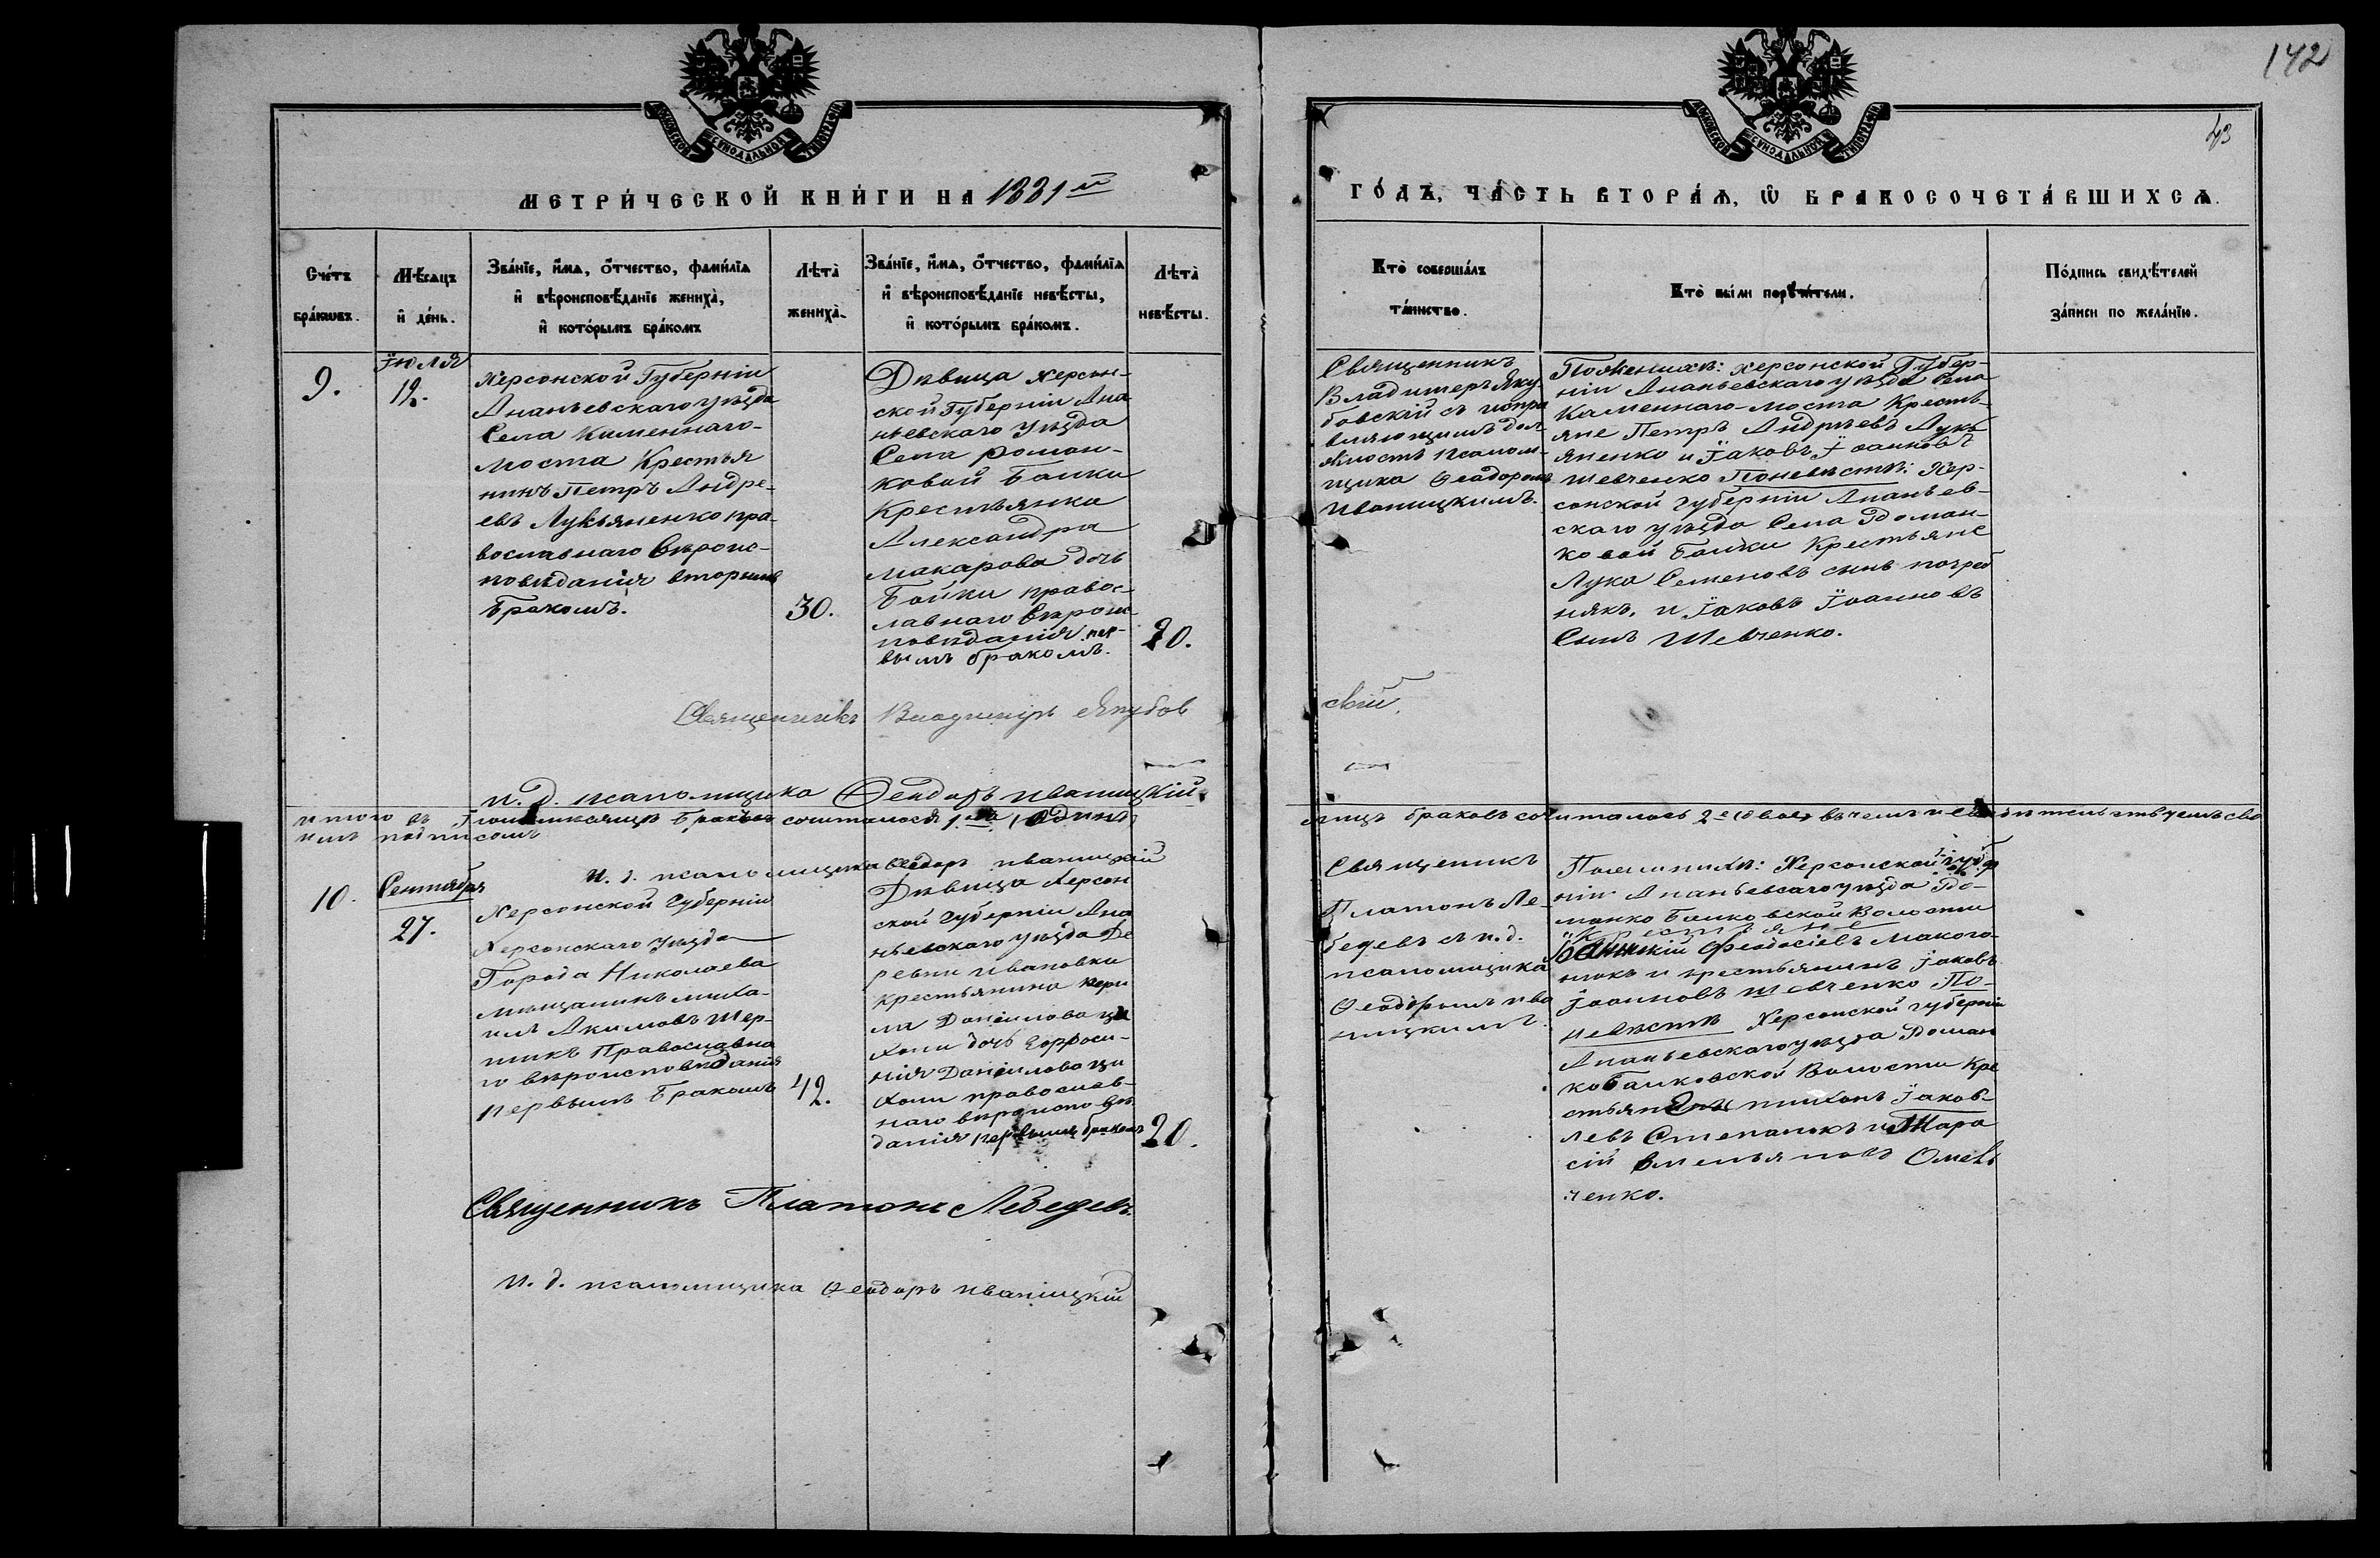 142
43
МЕТРИ́ЧЕСКОЙ КНИ́ГИ НА 1881й
ГО́ДЪ, ЧА́СТЬ ВТОРА́Ѧ, Ѡ БРАКОСОЧЕТА́ВШИХСѦ.
Сче́тъ
бра́кѡвъ.
Мѣ́сѧцъ
и҆ де́нь.
Зва́нїе, и҆́мѧ, ѻ҆́тчество, фами́лїѧ
и҆ вѣроисповѣ́данїе жениха̀,
и҆ кото́рымъ бра́комъ
Лѣта̀
жениха̀.
Зва́нїе, и҆́мѧ, ѻ҆́тчество, фами́лїѧ
и҆ вѣроисповѣ́данїе невѣ́сты,
и҆ кото́рымъ бра́комъ.
Лѣта̀
невѣ́сты.
Кто̀ соверша́лъ
та́инство.
Кто̀ бы́ли порꙋчи́тели.
По́дпись свидѣ́телей
за́писи по жела́нїю.
9.
Іюля
12.
Херсонской Губерніи
Ананьевскаго уѣзда
Села Каменнаго-
моста Крестья
нинъ Петръ Андре-
евъ Лукьяненко пра-
вославнаго вѣроис-
повѣданія вторымъ
бракомъ.
30.
Дѣвица Херсон-
ской Губерніи Ана
ньевскаго уѣзда
Села Доман-
ковой Балки
Крестьянка
Александра
Макарова дочь
Бойки правос-
лавнаго вѣроис
повѣданія пер-
вымъ бракомъ.
20.
Священникъ
Владимеръ Яку
бовскій съ испра
вляющимъ дол-
жность псалом-
щика Ѳеадоромъ
Иваницкимъ.
Поженихѣ: Херсонской Губер-
ніи Ананьевскаго уѣзда Села
Каменнаго-моста Кресть-
яне Петръ Андреевъ Лукь
яненко и Іаковъ Іоанновъ
Шевченко Поневѣстѣ: Хер-
сонской губерніи Ананьев-
скаго уѣзда Села Доман-
ковой Балки Крестьяне
Лука Семеновъ сынъ погреб
някъ, и Іаковъ Іоанновъ
Сынъ Шевченко.
Священникъ Владиміръ Якубов
скій.
И. д. псаломщика Ѳеадоръ Иваницкій
итого въ Іюлѣ мѣсяцѣ браковъ считалося 1 (одинъ)
имъ подписомъ
И. д. псаломщика Ѳеадоръ Иваницкій
10.
Сентября
27.
Херсонской Губерніи
Херсонскаго уѣзда
Города Николаева
мѣщанинъ миха-
илъ Акимовъ Шер-
Православна
го вѣроисповѣданія
первымъ бракомъ
42.
Дѣвица Херсон
ской Губерніи Ана
ньевскаго уѣзда Де
ревни Ивановки
крестьянина
Даніилова
дочь Евфроси-
нія Даніилова
православ-
наго вѣроисповѣ
данія первымъ бракомъ
20.
Священикъ
Платонъ Ле-
бедевъ съ и. д.
псаломщика
Ѳеадоромъ Ива
ницкимъ.
Поженихѣ: Херсонской губер
ніи Ананьевскаго уѣзда До-
манко Балковской Волости
крестьяне
Ѳеодосіевъ Макого-
нюкъ и крестьянинъ Іаковъ
Іоанновъ Шевченко По-
невѣстѣ Херсонской губерніи
Ананьевскаго уѣзда Доман
ко Балковской Волости Кре
стьяне Тихонъ Іаков-
левъ Степанюкъ и Тара
сій Омель
ченко.
Священникъ Платонъ Лебедевъ.
И. д. псаломщика Ѳеадоръ Иваницкій